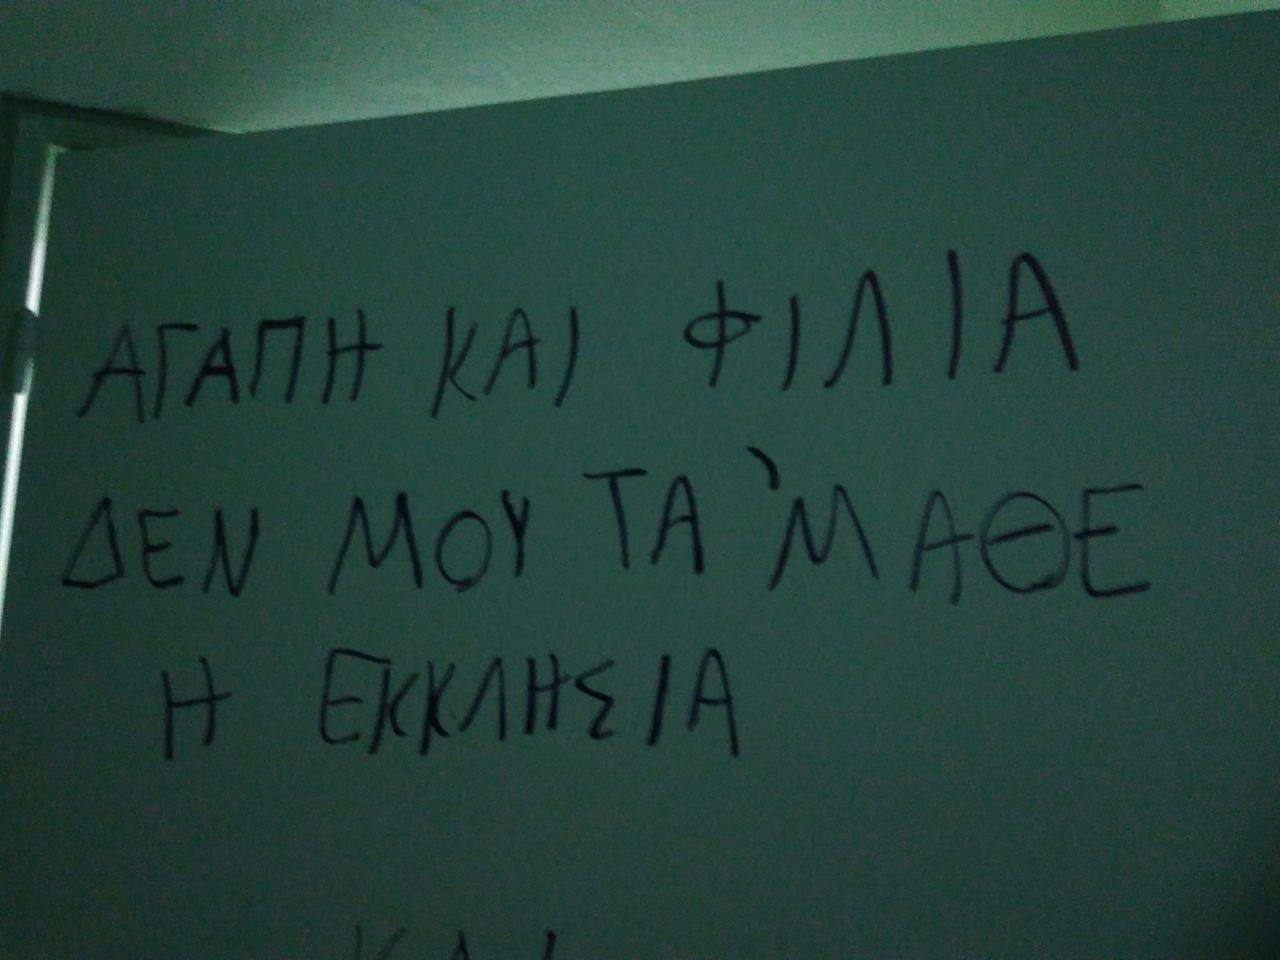 ΑΓΑΠΗ ΚΑΙ ΦΙΛΙΑ
ΔΕΝ ΜΟΥ ΤΑ 'ΜΑΘΕ
Η ΕΚΚΛΗΣΙΑ
ΚΑΙ